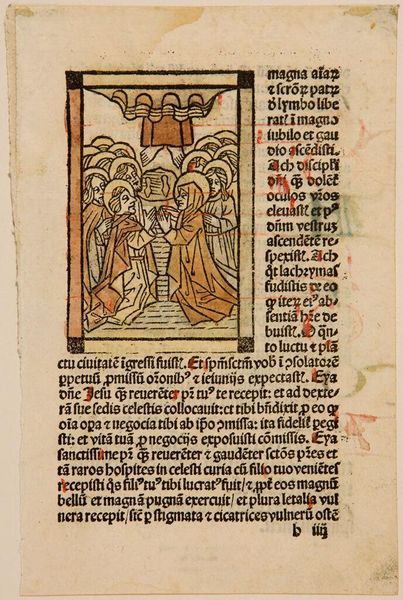 magna aīaꝝ
⁊ scr̄oꝝ patꝝ
ď lymbo libe
rat᷒ ī magno
iubilo et gau
dio ascēdisti.
Ach discipl̄i
dn̄i qȝ dolēt
oculos vr̄os
eleuast᷒ et p᷒
dn̄m vestruȝ
ascendētē re-
spexist᷒. Ach
qt̄ lachrymas
fudistis de eo
qͥ iteȝ ei᷒ ab-
sentiā hr̄e de
buist᷒. O qn̄-
to luctu ⁊ plā
ctu ciuitatē īgressi fuist᷒. Et sp̄m sctm̄ vob᷒ ī ꝯsolatorē
ꝑpetuū ꝓmissū or̄onib᷒ ⁊ ieiunijs expectast᷒. Eya
dn̄e Jesu qȝ reuerēter pr̄ tu᷒ te recepit: et ad dexte-
rā sue sedis celestis collocauit: et tibi bn̄dixit ꝓ eo ꝙ
oīa oꝑa ⁊ negocia tibi ab ip̄o ꝯmissa: ita fidelit᷒ pegi
sti: et vitā tuā ꝓ negocijs exposuisti cōmissis. Eya
sanctissime pr̄ qȝ reuerēter ⁊ gaudēter sctōs pr̄es et
tā raros hospites in celesti curia cū filio tuo veniētes
recepisti qͦs fili᷒ tu᷒ tibi lucrat᷒ fuit/ ⁊ ꝓpt̄ eos magnū
bellū et magnā pugnā exercuit/ et plura letalia vul
nera recepit/ sic̄ ꝑ stigmata ⁊ cicatrices vulnerū ostē
b iiij